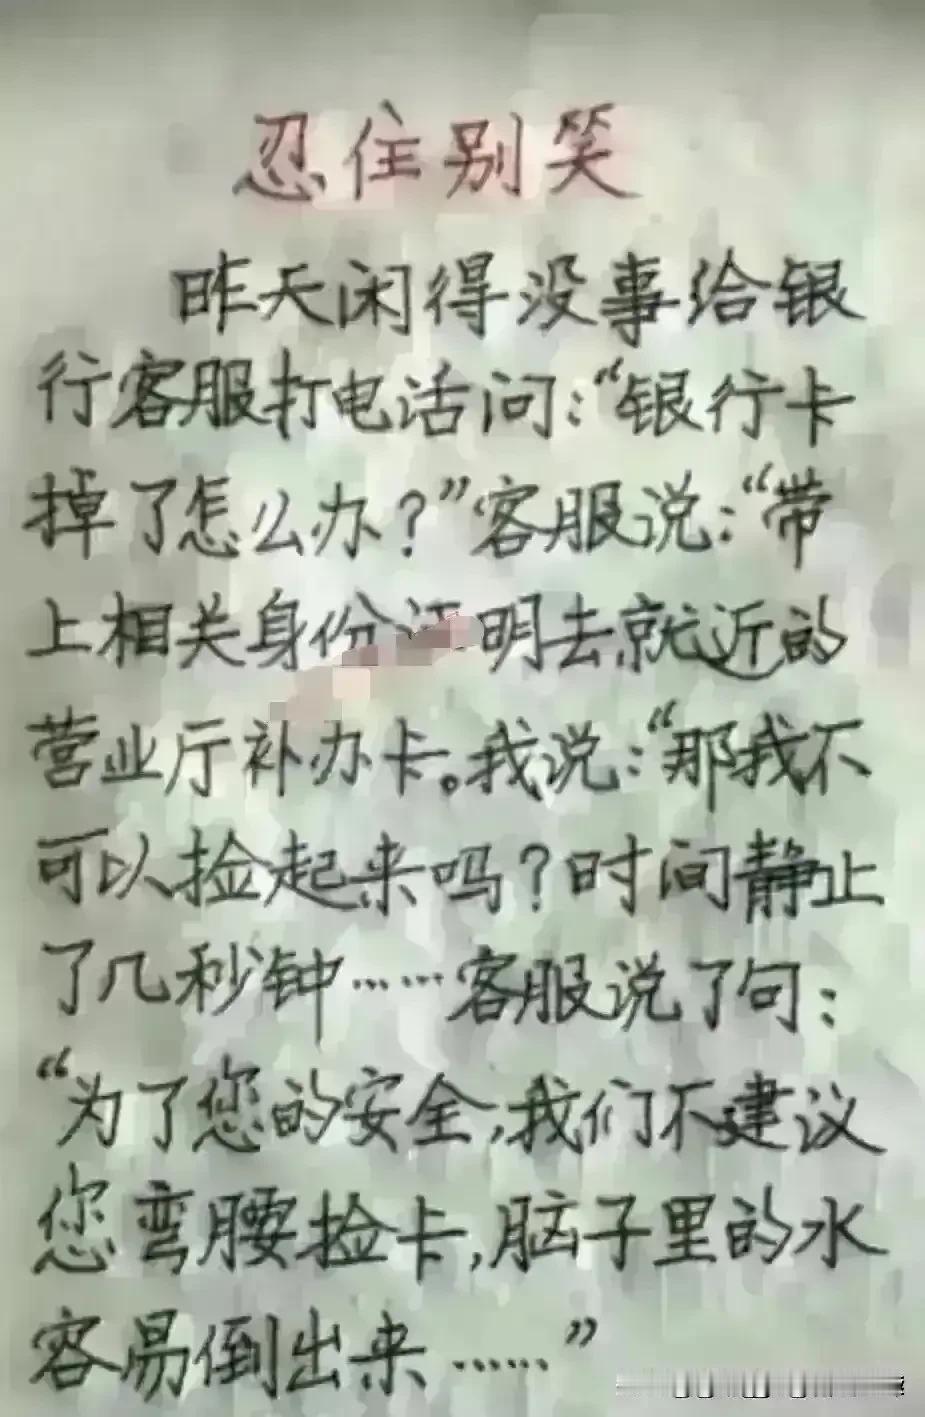 忍住别笑
昨天闲得没事给银
行客服打电话问:“银行卡
掉了怎么办?”客服说:“带
上相关身份证明去就近的
营业厅补办卡。我说:“那我不
可以捡起来吗?时间静止
了几秒钟……客服说了句:
“为了您的安全,我们不建议
您弯腰捡卡,脑子里的水
容易倒出来……”